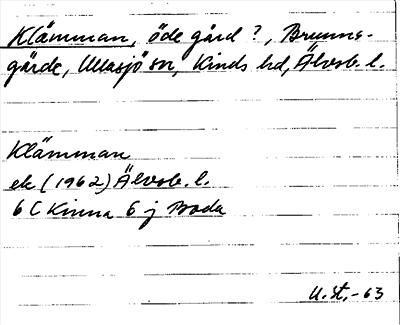 Klämman, öde gård ?, Brunns-
gärde, Ullasjö sn, Kinds hd, Älvsb. l.
Klämman
ek (1962) Älvsb. l.
6 C Kinna 6 j Boda
U. St. -63